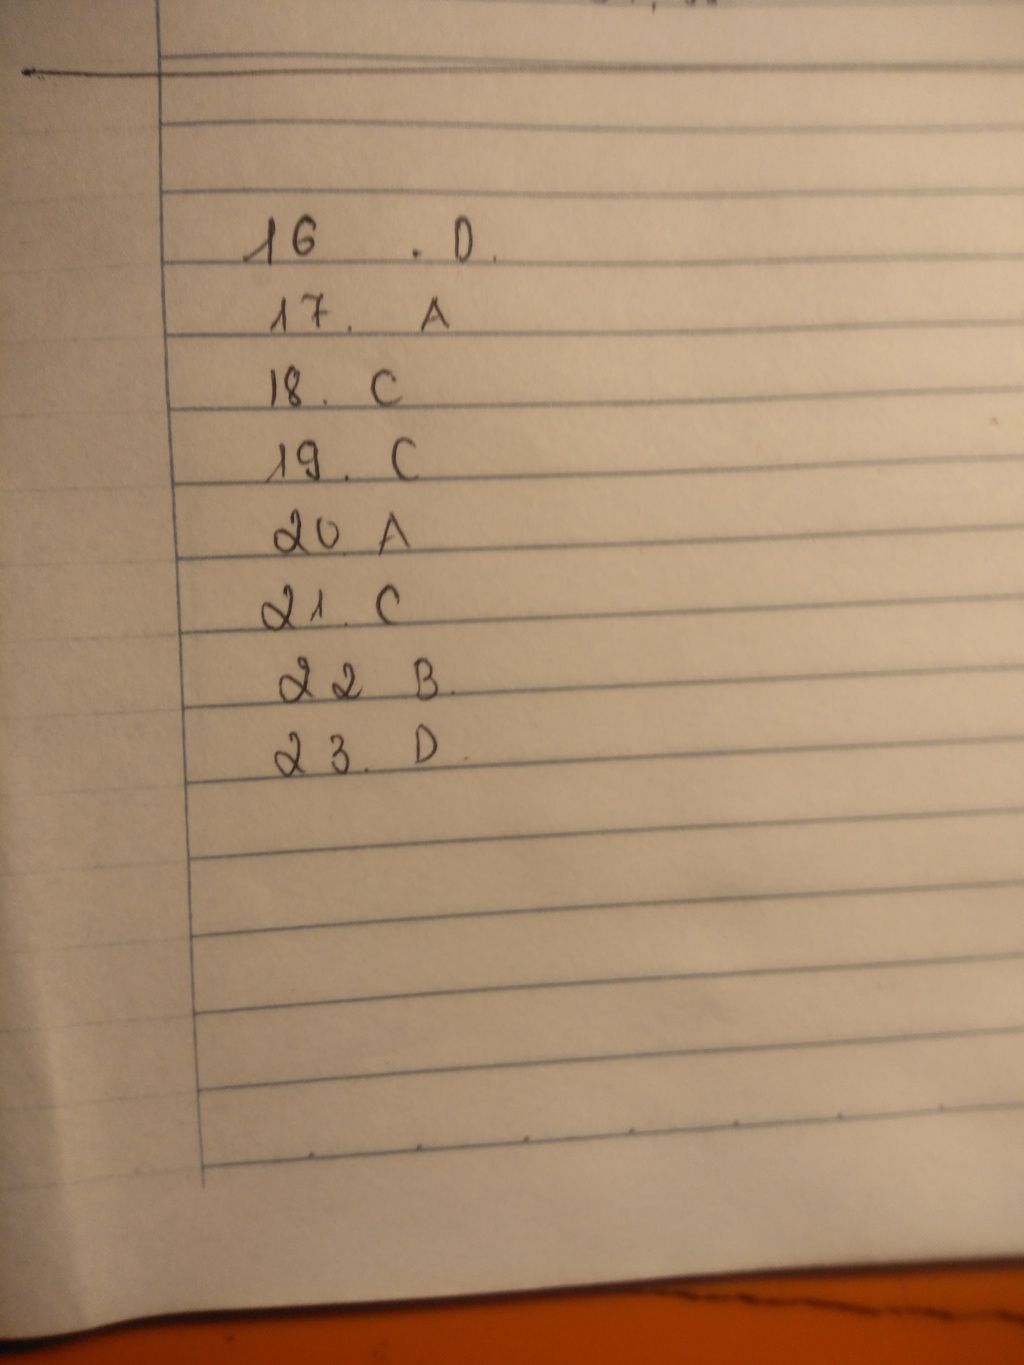 16 . D.
17. A
18. C
19. C
20 A
21. C
22 B.
23. D.